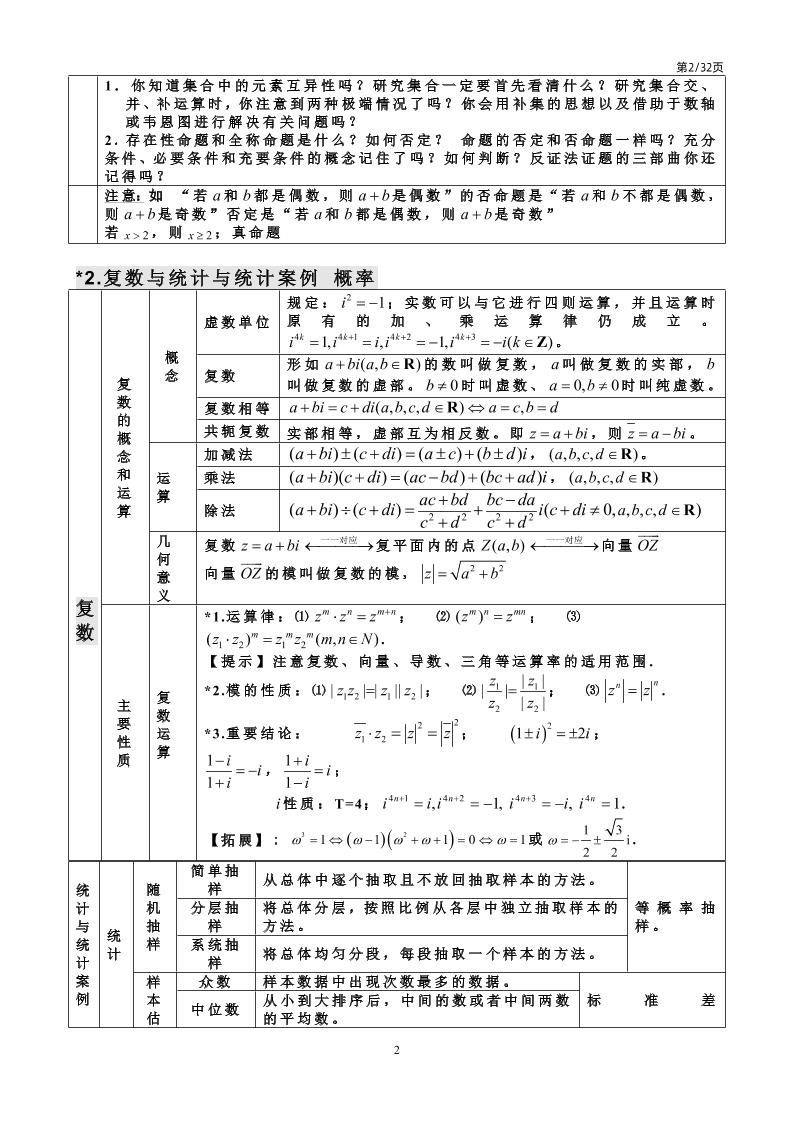 第2/32页
1．你知道集合中的元素互异性吗？研究集合一定要首先看清什么？研究集合交、
并、补运算时，你注意到两种极端情况了吗？你会用补集的思想以及借助于数轴
或韦恩图进行解决有关问题吗？
2．存在性命题和全称命题是什么？如何否定？ 命题的否定和否命题一样吗？充分
条件、必要条件和充要条件的概念记住了吗？如何判断？反证法证题的三部曲你还
记得吗？
注意：如 “若 a 和 b 都是偶数，则 a+b 是偶数”的否命题是“若 a 和 b 不都是偶数，
则 a+b 是奇数”否定是“若 a 和 b 都是偶数，则 a+b 是奇数”
若 x>2，则 x≥2；真命题
*2.复数与统计与统计案例 概率
复数
复数的概念和运算
概念
虚数单位
规定：i²=−1；实数可以与它进行四则运算，并且运算时
原有的加、乘运算律仍成立。
i^{4k}=1,i^{4k+1}=i,i^{4k+2}=−1,i^{4k+3}=−i(k∈Z)。
复数
形如 a+bi(a,b∈R) 的数叫做复数，a 叫做复数的实部，b
叫做复数的虚部。b≠0 时叫虚数、a=0,b≠0 时叫纯虚数。
复数相等
a+bi=c+di(a,b,c,d∈R)⇔a=c,b=d
共轭复数
实部相等，虚部互为相反数。即 z=a+bi，则 \overline{z}=a−bi。
运算
加减法
(a+bi)±(c+di)=(a±c)+(b±d)i，(a,b,c,d∈R)。
乘法
(a+bi)(c+di)=(ac−bd)+(bc+ad)i，(a,b,c,d∈R)
除法
(a+bi)÷(c+di)=\frac{ac+bd}{c²+d²}+\frac{bc−da}{c²+d²}i(c+di≠0,a,b,c,d∈R)
几何意义
复数 z=a+bi ←一一对应→ 复平面内的点 Z(a,b) ←一一对应→ 向量 \overrightarrow{OZ}
向量 \overrightarrow{OZ} 的模叫做复数的模，|z|=√(a²+b²)
主要性质
复数运算
*1.运算律：⑴ z^m·z^n=z^{m+n}； ⑵ (z^m)^n=z^{mn}； ⑶
(z₁·z₂)^m=z₁^m z₂^m(m,n∈N)．
【提示】注意复数、向量、导数、三角等运算率的适用范围．
*2.模的性质：⑴ |z₁z₂|=|z₁||z₂|； ⑵ |\frac{z₁}{z₂}|=\frac{|z₁|}{|z₂|}； ⑶ |z^n|=|z|^n．
*3.重要结论： \overline{z₁}·z₂=|z|²=|\overline{z}|²； (1±i)²=±2i；
\frac{1−i}{1+i}=−i，\frac{1+i}{1−i}=i；
i性质：T=4；i^{4n+1}=i,i^{4n+2}=−1, i^{4n+3}=−i, i^{4n}=1．
【拓展】：ω³=1⇔(ω−1)(ω²+ω+1)=0⇔ω=1或 ω=−\frac{1}{2}±\frac{√3}{2}i．
统计与统计案例
统计
随机抽样
简单抽样
从总体中逐个抽取且不放回抽取样本的方法。
等概率抽样。
分层抽样
将总体分层，按照比例从各层中独立抽取样本的
方法。
系统抽样
将总体均匀分段，每段抽取一个样本的方法。
样本估
众数
样本数据中出现次数最多的数据。
标准差
中位数
从小到大排序后，中间的数或者中间两数
的平均数。
2